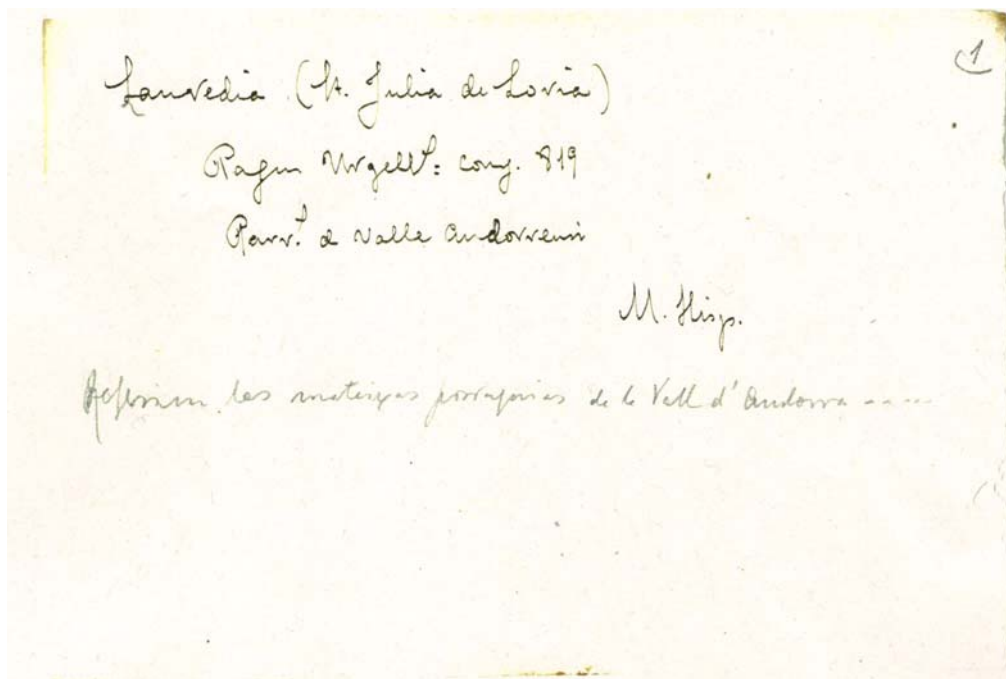 1
Lauredia (St. Julia de Loria)
Pagus Urgellt: cong. 819
Parr. de Valle Andorrensi
M. Hisp.
les mateixes parroquies de la Vall d'Andorra -----